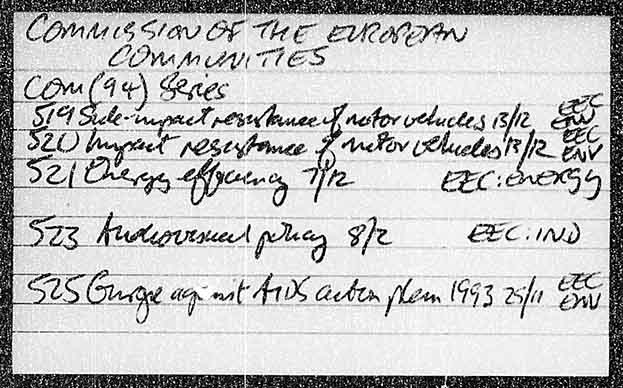 COMMISSION OF THE EUROPEAN
COMMUNITIES
COM(94) Series
519 Side-impact resistance of motor vehicles 13/12 EEC ENV
520 Impact resistance of motor vehicles 13/12 EEC ENV
521 Energy efficiency 7/12 EEC:ENERGY
523 Audiovisual policy 8/2 EEC:IND
525 Europe against AIDS action plan 1993 25/11 EEC ENV